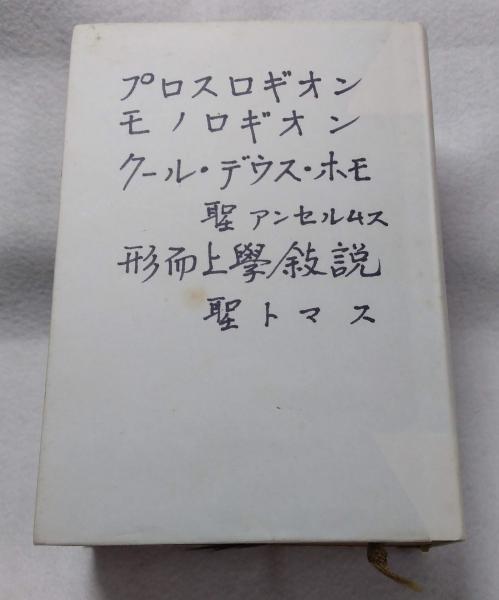 プロスロギオン
モノロギオン
クール・デウス・ホモ
聖アンセルムス
形而上學敍説
聖トマス